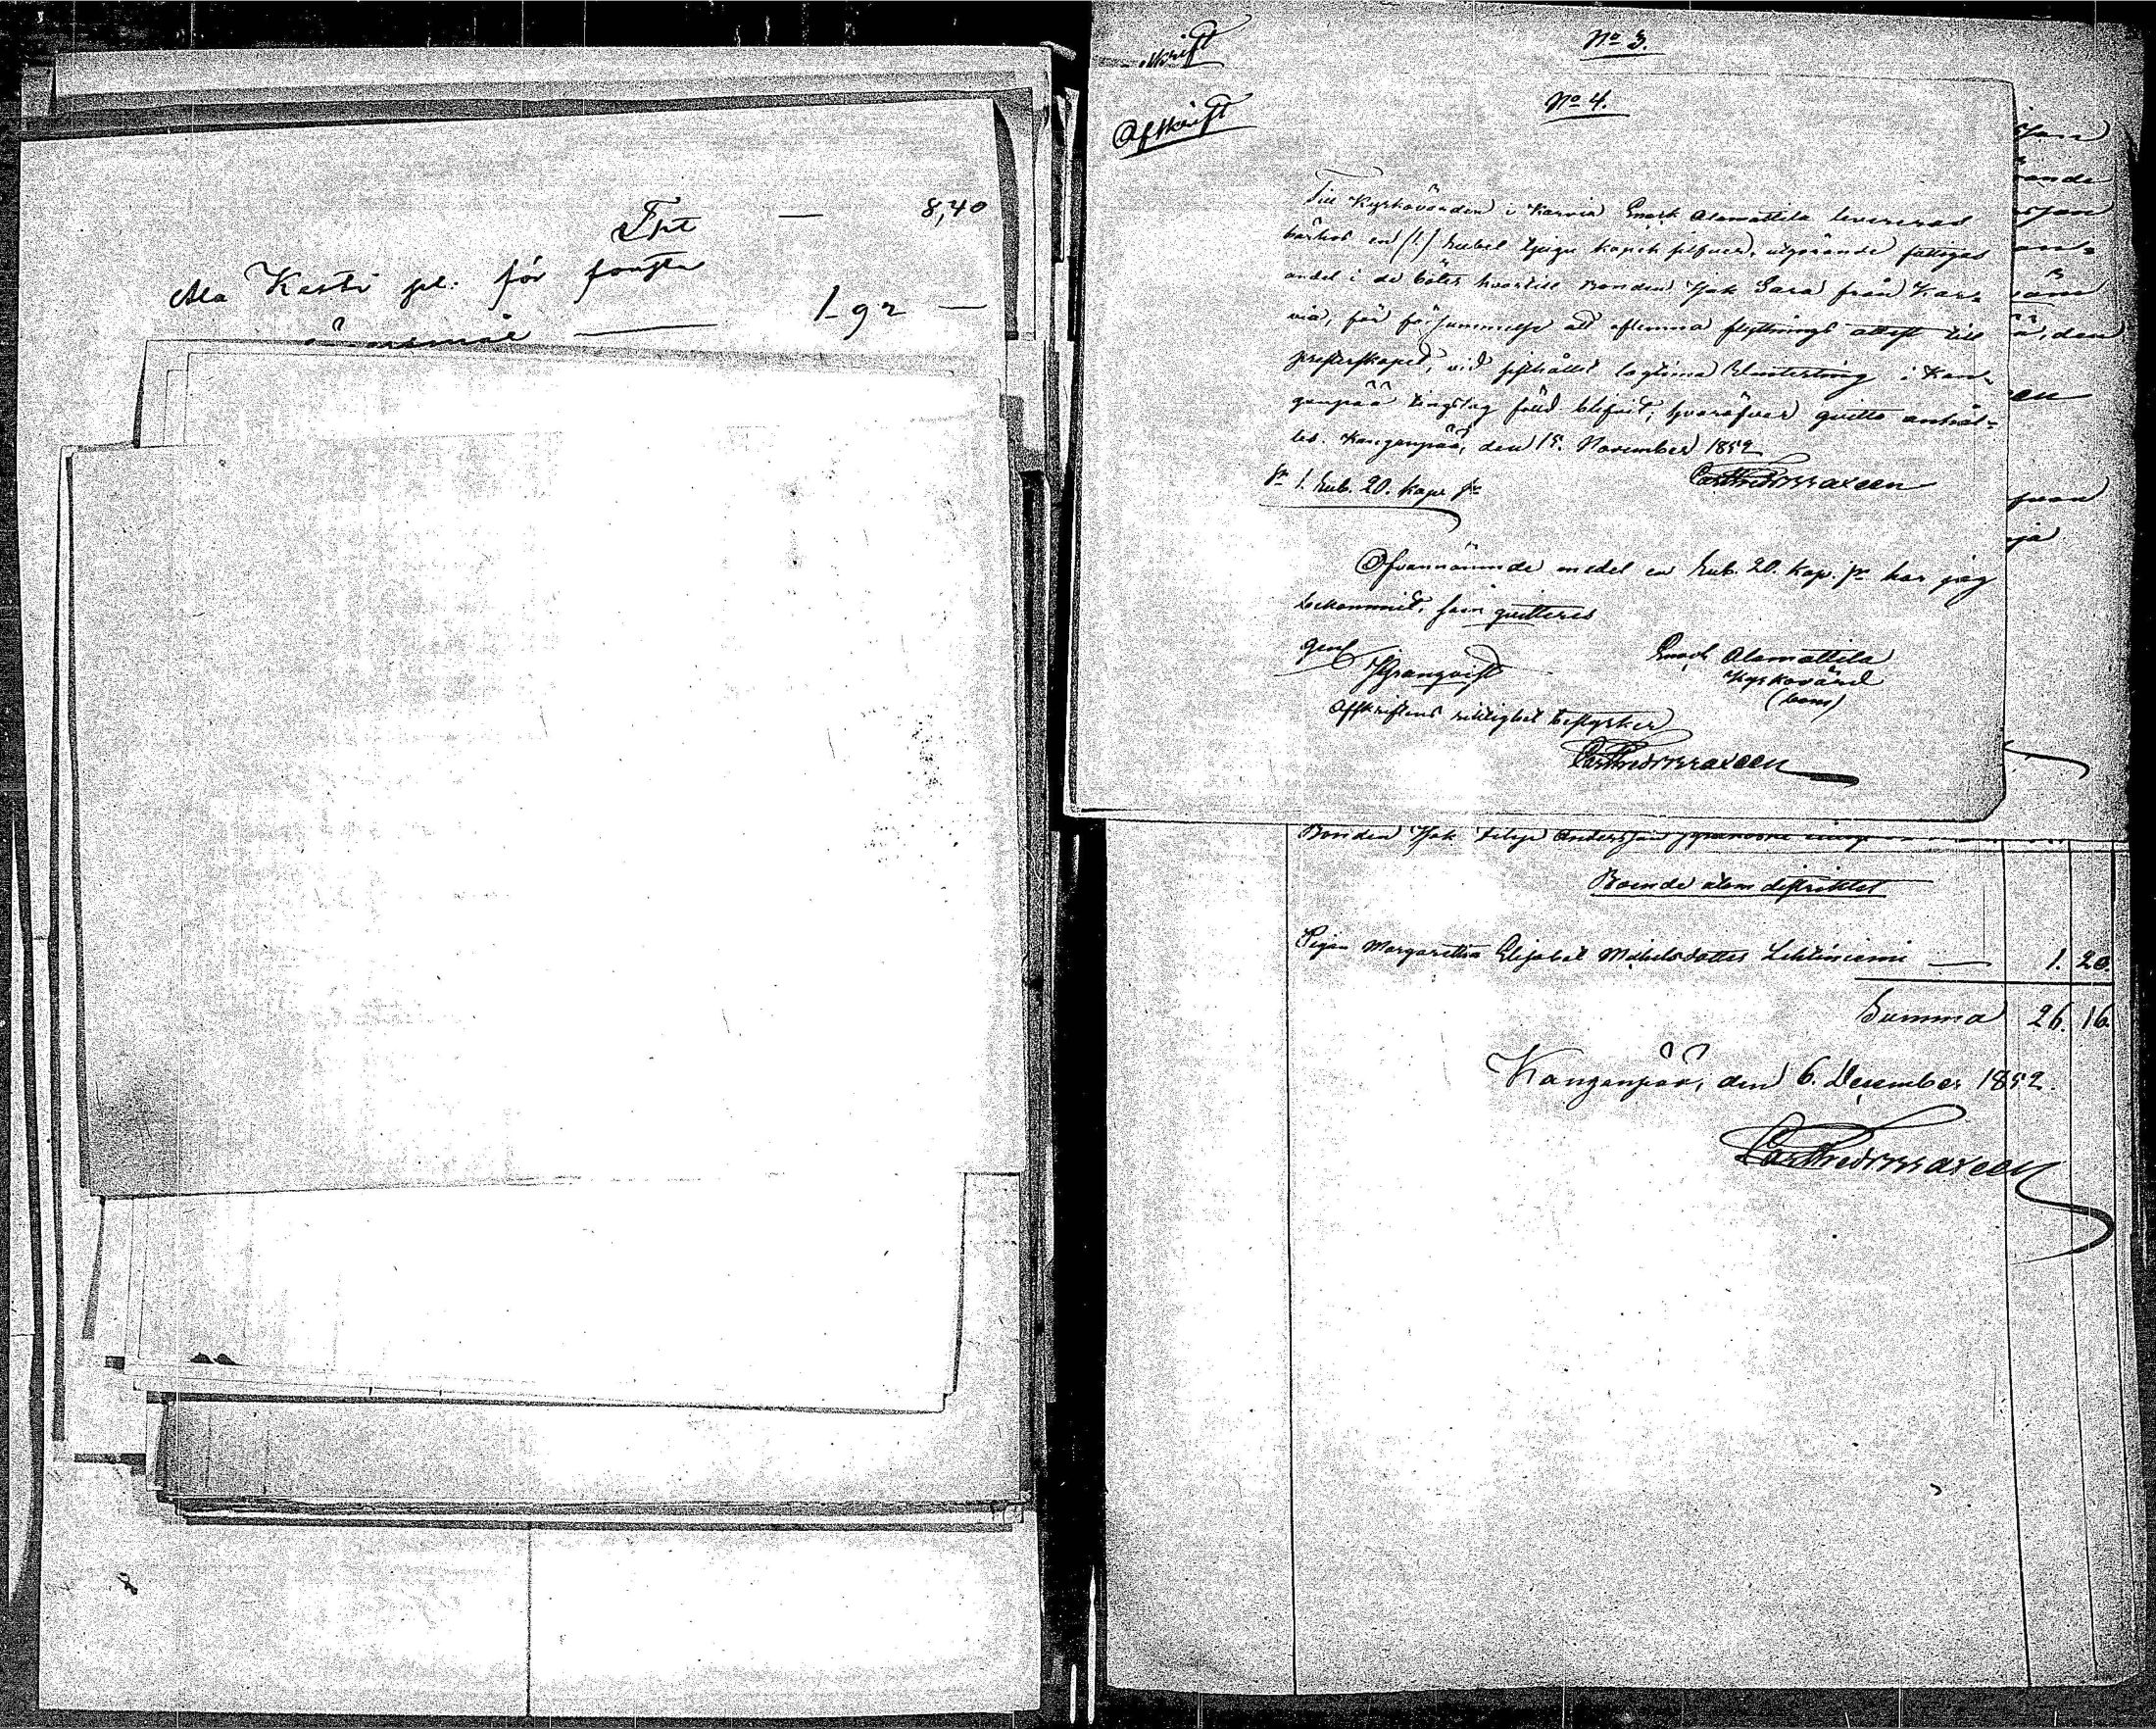 8,40
Ala Kasti pl. för
1 92 —
No 3.
No 4.
Afskrift
Till Kyrkovärden i Karvia Enock Alamattila levereras
härhos en (1) Rubel tjugu kopek silfver, utgörande fattigas
andel i de böter hvartill Bonden Jsak Sara från Kar-
via, för försummelse att aflemna flyttnings attest till
presterskapet, vid sisthållet lagtima Vinterting i Kan-
ganpää tingslag fälld blifvit; hvaröfver quitto anhål-
les. Kanganpää, den 15. November 1852
Sr 1. Rub. 20. kop. Sr
Ofvannämnde medel en Rub. 20. Kop. Sr har jag
bekommit, som quitteras
Enoch Alamattila
Kyrkovärd
JGranqvist
Afskriftens riktighet bestyrker
ande
den
från
Bonden Jsak Filip Andersson
Boende utom distriktet
Pigan Margaretha Elisabet Mickelsdotter Lehtiniemi — 1. 20.
Summa 26. 16.
Kanganpää, den 6. December 1852.